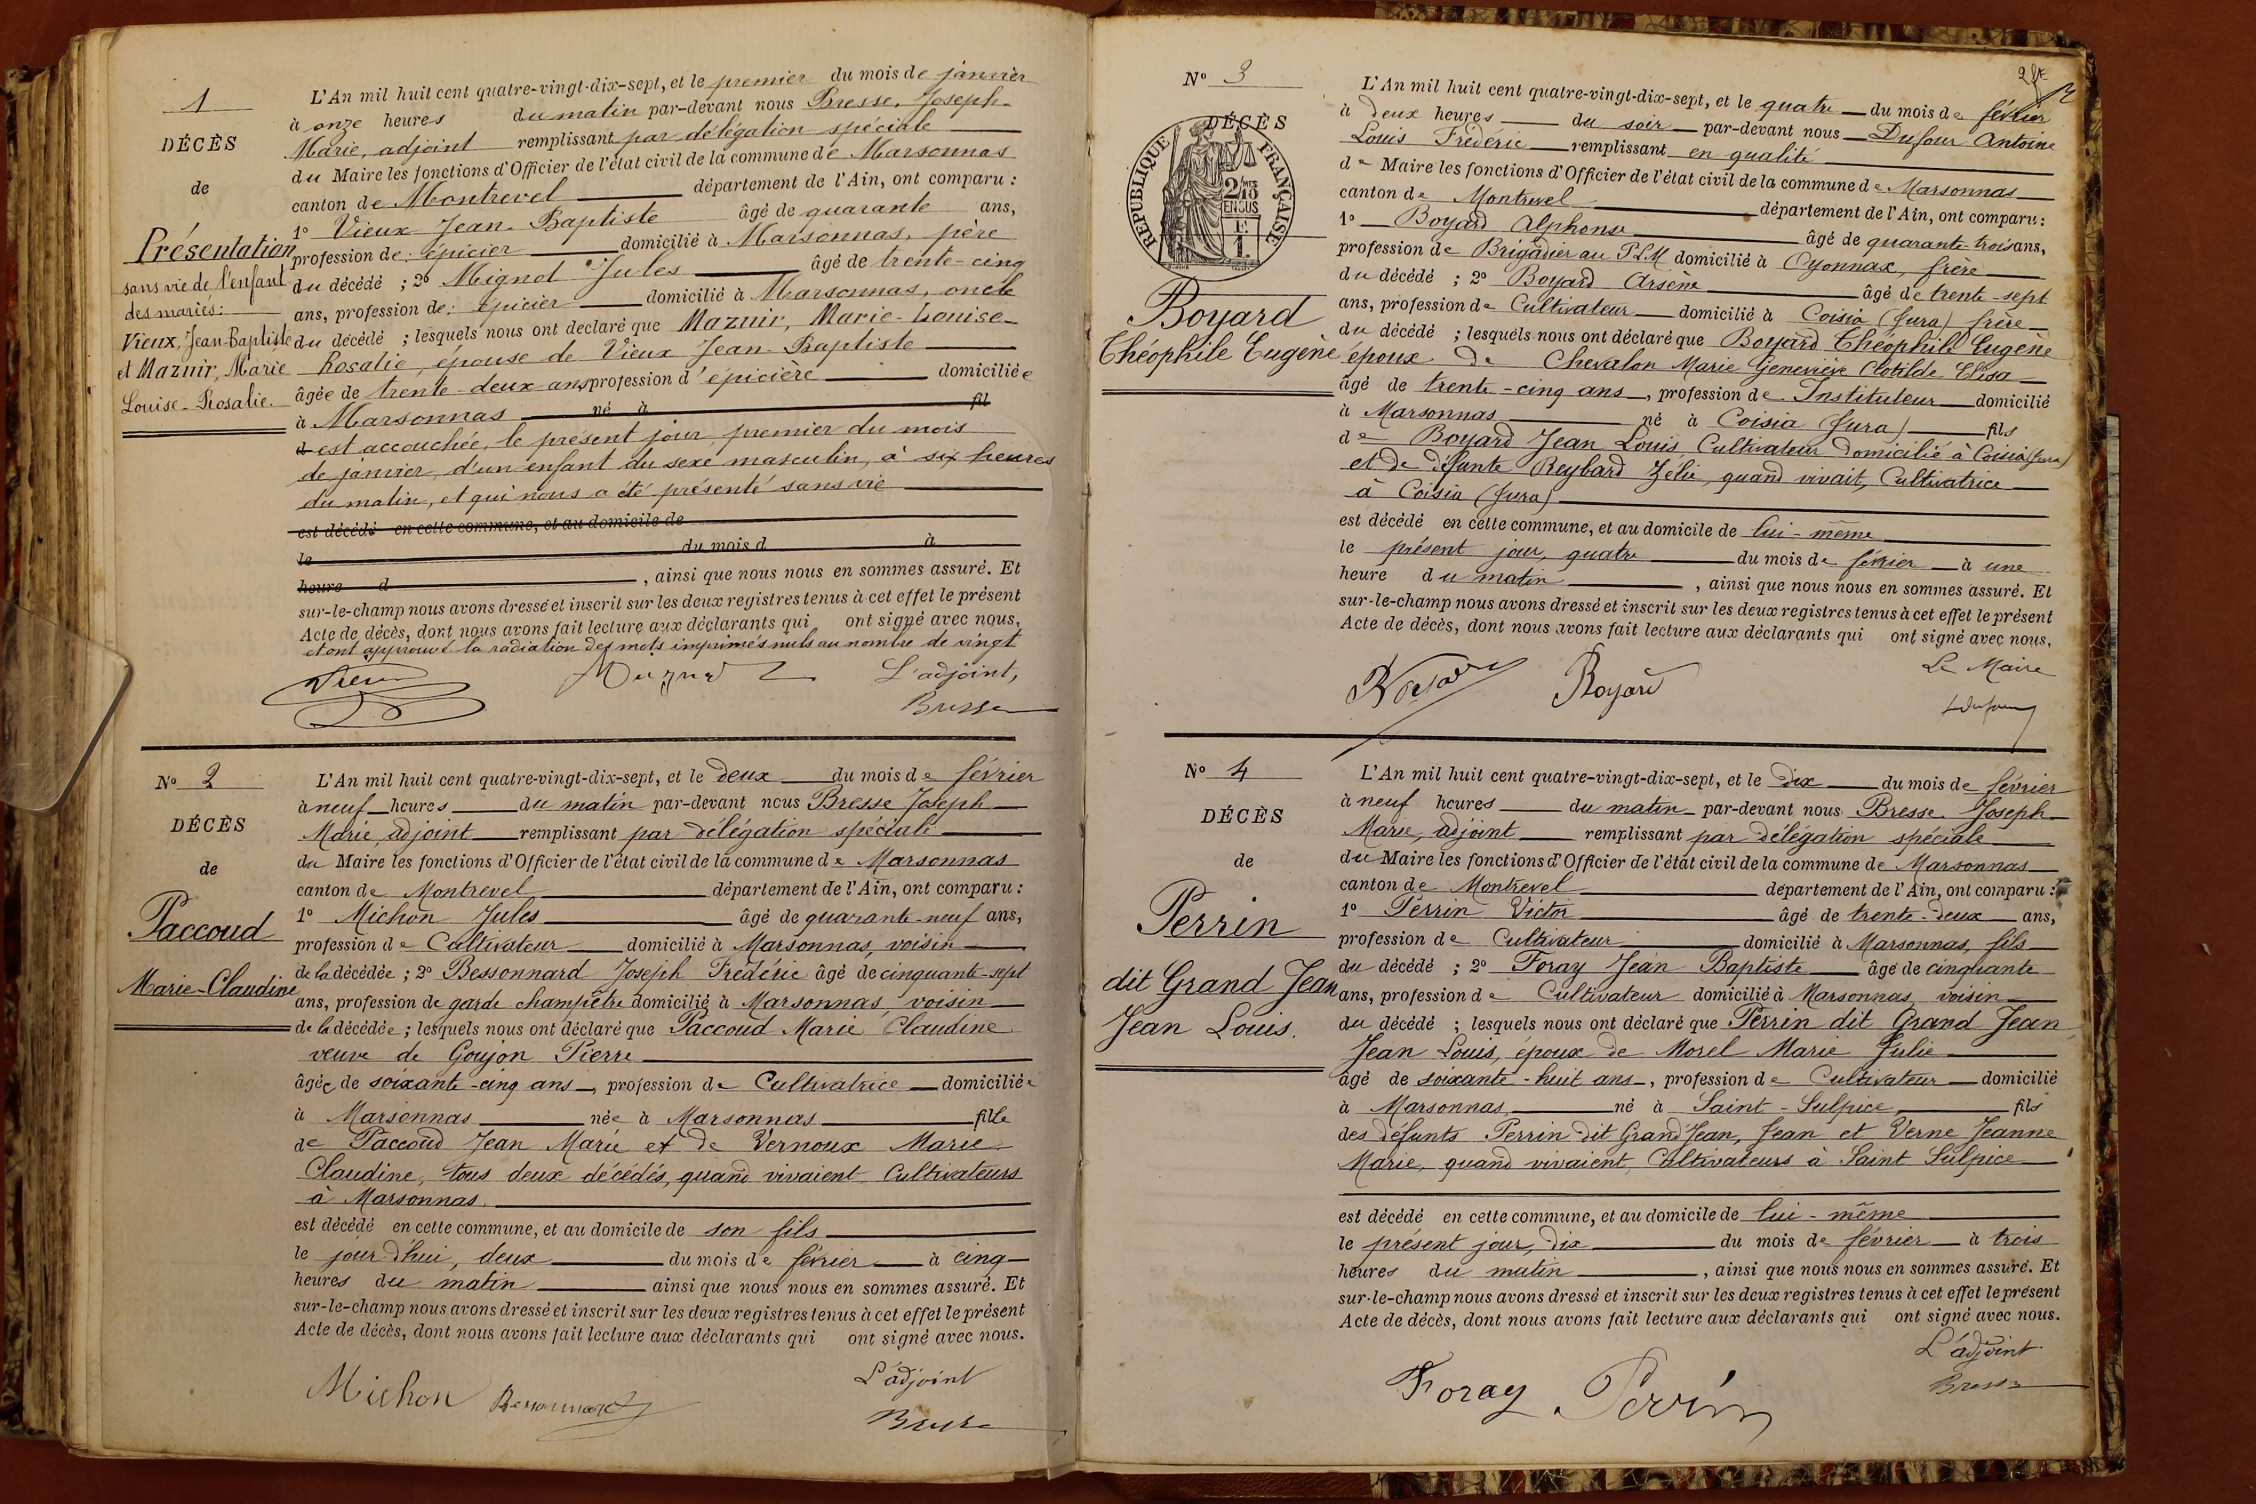 1
DÉCÈS
de
Présentation
sans vie de l'enfant
des mariés:
Vieux, Jean-Baptiste
et Mazuir, Marie
Louise-Rosalie.
L'An mil huit cent quatre-vingt-dix-sept, et le premier du mois de janvier
à onze heures du matin par-devant nous Bresse, Joseph-
Marie, adjoint remplissant par délégation spéciale
du Maire les fonctions d'Officier de l'état civil de la commune de Marsonnas
canton de Montrevel département de l'Ain, ont comparu :
1º Vieux Jean-Baptiste âgé de quarante ans,
profession de : épicier domicilié à Marsonnas, père
du décédé ; 2º Mignot Jules âgé de trente-cinq
ans, profession de : épicier domicilié à Marsonnas, oncle
du décédé ; lesquels nous ont déclaré que Mazuir, Marie-Louise-
Rosalie, épouse de Vieux Jean-Baptiste
âgée de trente-deux ans profession d'épicière domiciliée
à Marsonnas né à fil
d est accouchée, le présent jour, premier du mois
de janvier, d'un enfant du sexe masculin, à six heures
du matin, et qui nous a été présenté sans vie
est décédé en cette commune, et au domicile de
le du mois d à
heure d , ainsi que nous nous en sommes assuré. Et
sur-le-champ nous avons dressé et inscrit sur les deux registres tenus à cet effet le présent
Acte de décès, dont nous avons fait lecture aux déclarants qui ont signé avec nous,
et ont approuvé la radiation des mots imprimés nuls au nombre de vingt
Vieux L'adjoint,
Bresse
Nº 2
DÉCÈS
de
Paccoud
Marie-Claudine
L'An mil huit cent quatre-vingt-dix-sept, et le deux du mois de février
à neuf heures du matin par-devant nous Bresse Joseph
Marie, adjoint remplissant par délégation spéciale
du Maire les fonctions d'Officier de l'état civil de la commune de Marsonnas
canton de Montrevel département de l'Ain, ont comparu :
1º Michon Jules âgé de quarante-neuf ans,
profession de Cultivateur domicilié à Marsonnas, voisin
de la décédée ; 2º Bessonnard Joseph Frédéric âgé de cinquante-sept
ans, profession de garde champêtre domicilié à Marsonnas, voisin
de la décédée ; lesquels nous ont déclaré que Paccoud Marie Claudine
veuve de Goujon Pierre
âgée de soixante-cinq ans, profession de Cultivatrice domiciliée
à Marsonnas née à Marsonnas fille
de Paccoud Jean Marie et de Vernoux Marie
Claudine, tous deux décédés, quand vivaient Cultivateurs
à Marsonnas.
est décédé en cette commune, et au domicile de son fils
le jour d'hui, deux du mois de février à cinq
heures du matin ainsi que nous nous en sommes assuré. Et
sur-le-champ nous avons dressé et inscrit sur les deux registres tenus à cet effet le présent
Acte de décès, dont nous avons fait lecture aux déclarants qui ont signé avec nous.
Michon Bessonnard L'adjoint
Bresse
Nº 3
DÉCÈS
RÉPUBLIQUE FRANÇAISE
2/10
EN SUS
Boyard
Théophile Eugène
L'An mil huit cent quatre-vingt-dix-sept, et le quatre du mois de février
à deux heures du soir par-devant nous Dufour Antoine
Louis Frédéric remplissant en qualité
de Maire les fonctions d'Officier de l'état civil de la commune de Marsonnas
canton de Montrevel département de l'Ain, ont comparu :
1º Boyard Alphonse âgé de quarante-trois ans,
profession de Brigadier au PLM domicilié à Oyonnax, frère
du décédé ; 2º Boyard Arsène âgé de trente-sept
ans, profession de Cultivateur domicilié à Coisia (Jura) frère
du décédé ; lesquels nous ont déclaré que Boyard Théophile Eugène
époux de Chevalon Marie Geneviève Clotilde Elisa
âgé de trente-cinq ans, profession de Instituteur domicilié
à Marsonnas né à Coisia (Jura) fils
de Boyard Jean Louis Cultivateur domicilié à Coisia (Jura)
et de défunte Reybard Zélie, quand vivait, Cultivatrice
à Coisia (Jura)
est décédé en cette commune, et au domicile de lui-même
le présent jour, quatre du mois de février à une
heure du matin , ainsi que nous nous en sommes assuré. Et
sur-le-champ nous avons dressé et inscrit sur les deux registres tenus à cet effet le présent
Acte de décès, dont nous avons fait lecture aux déclarants qui ont signé avec nous.
Boyard Boyard Le Maire
Nº 4
DÉCÈS
de
Perrin
dit Grand Jean
Jean Louis.
L'An mil huit cent quatre-vingt-dix-sept, et le dix du mois de février
à neuf heures du matin par-devant nous Bresse Joseph
Marie, adjoint remplissant par délégation spéciale
du Maire les fonctions d'Officier de l'état civil de la commune de Marsonnas
canton de Montrevel département de l'Ain, ont comparu :
1º Perrin Victor âgé de trente-deux ans,
profession de Cultivateur domicilié à Marsonnas, fils
du décédé ; 2º Foray Jean Baptiste âgé de cinquante
ans, profession de Cultivateur domicilié à Marsonnas, voisin
du décédé ; lesquels nous ont déclaré que Perrin dit Grand Jean
Jean Louis, époux de Morel Marie Julie
âgé de soixante-huit ans, profession de Cultivateur domicilié
à Marsonnas né à Saint-Sulpice fils
des défunts Perrin dit Grand Jean, Jean et Verne Jeanne
Marie, quand vivaient, Cultivateurs à Saint Sulpice
est décédé en cette commune, et au domicile de lui-même
le présent jour, dix du mois de février à trois
heures du matin , ainsi que nous nous en sommes assuré. Et
sur-le-champ nous avons dressé et inscrit sur les deux registres tenus à cet effet le présent
Acte de décès, dont nous avons fait lecture aux déclarants qui ont signé avec nous.
L'adjoint
Foray Perrin Bresse